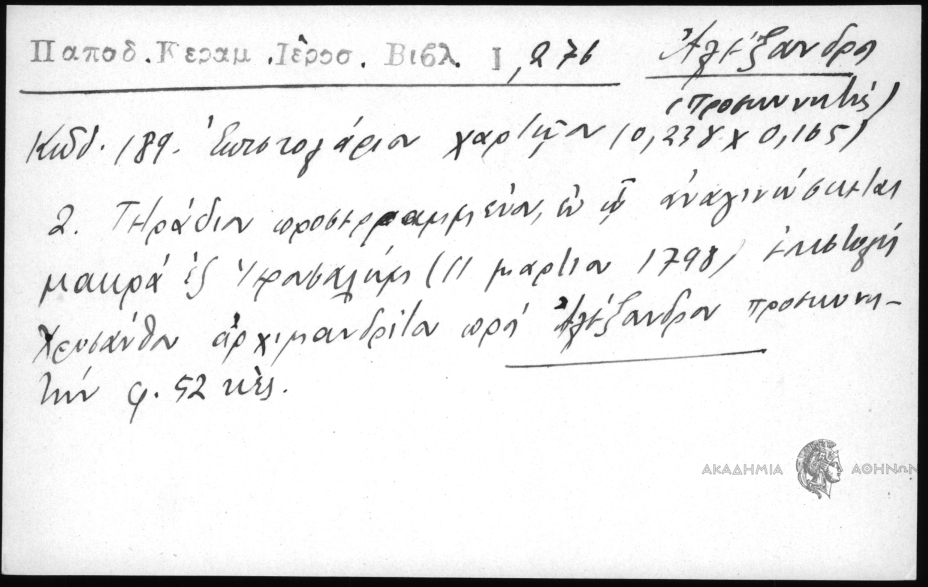 Παποδ. Κεραμ. Ἱερoσ. Βιβλ. I, 276
Ἀλέξανδρος
(προσκυνητής)
Κώδ. 189. Ἐπιστολάριον χαρτῷον (0,238 x 0,165)
2. Τετράδιον προσερραμμένον, ἐν ᾧ ἀναγινώσκεται
μακρὰ ἐξ Ἱερουσαλὴμ (11 μαρτίου 1798) ἐπιστολὴ
Χρυσάνθου ἀρχιμανδρίτου πρὸς Ἀλέξανδρον προσκυνη-
τήν φ. 52 κἑξ.
ΑΚΑΔΗΜΙΑ ΑΘΗΝΩΝ